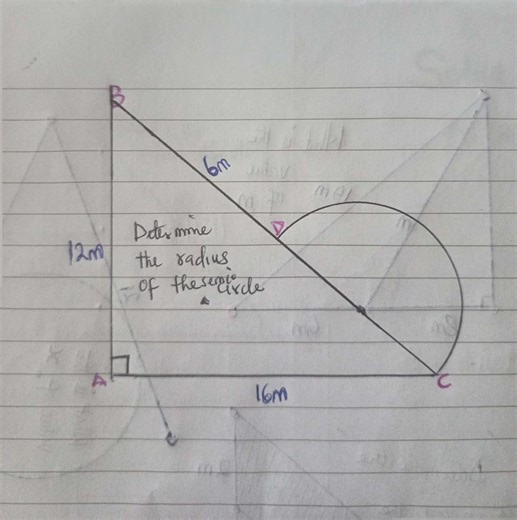 B
6m
D
Determine
the radius
of the semi circle
12m
A
16m
C